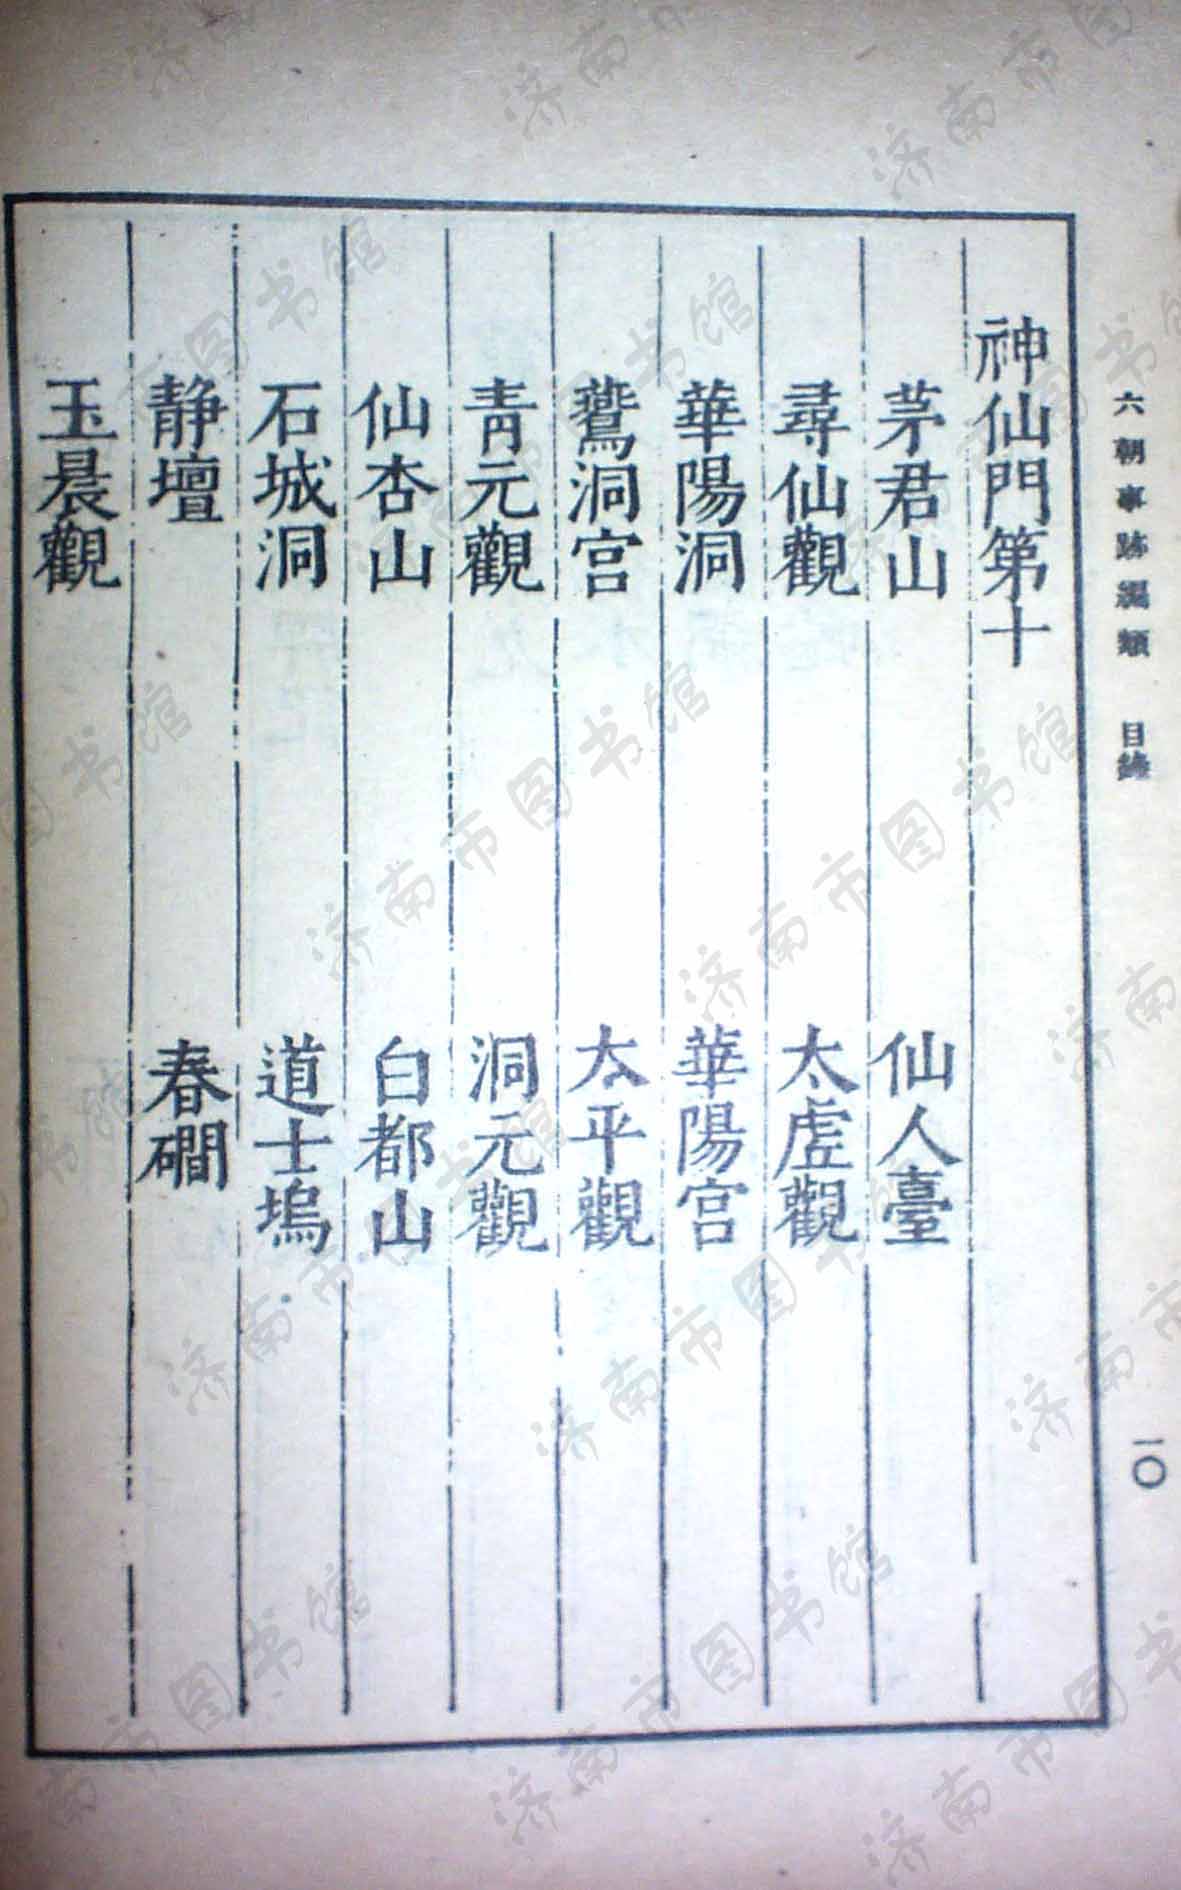 六朝事跡編類 目錄
一〇
神仙門第十
茅君山 仙人臺
尋仙觀 太虛觀
華陽洞 華陽宮
鵞洞宮 太平觀
青元觀 洞元觀
仙杏山 白都山
石城洞 道士塢
静壇 春磵
玉晨觀
济南市图书馆